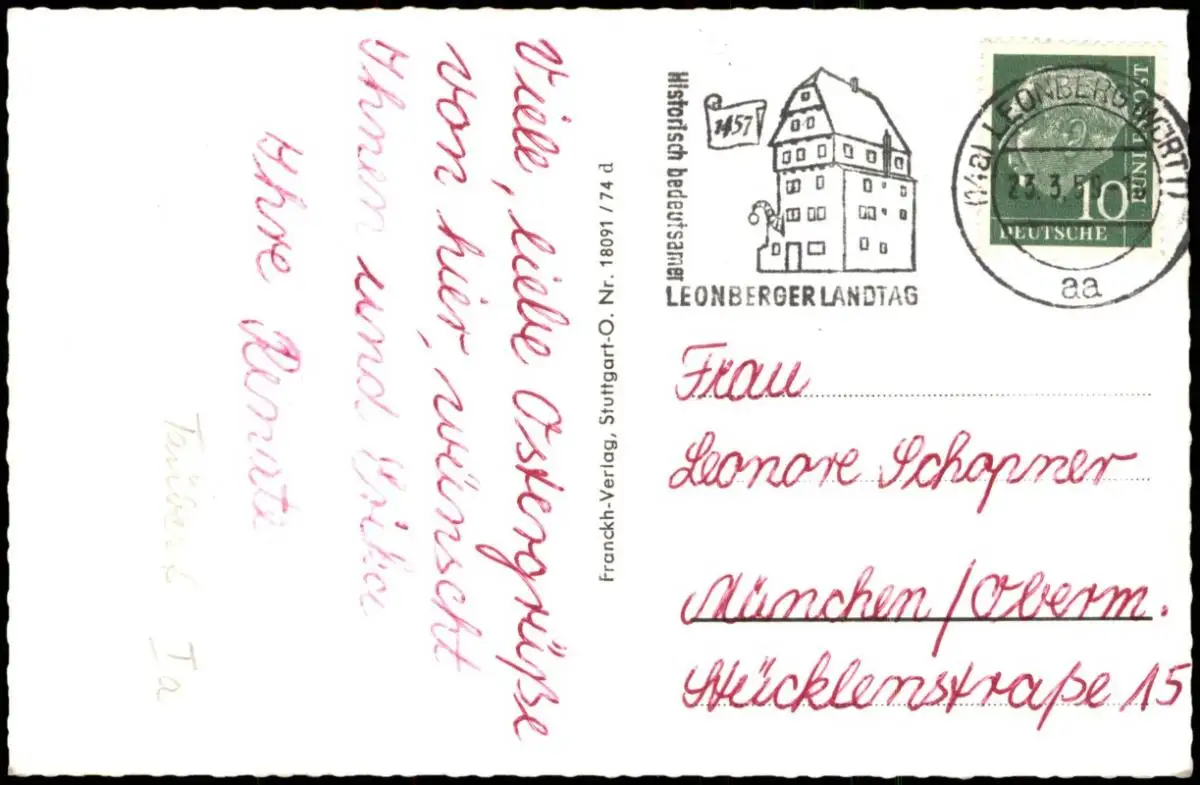 Viele, liebe Ostergrüße
von hier, wünscht
Ihnen und Erika
Ihre Renate
Ia
Franckh-Verlag, Stuttgart-O. Nr. 18091/74 d
Historisch bedeutsamer
1457
LEONBERGER LANDTAG
(14a) LEONBERG (WÜRTT)
23.3.5
aa
10
DEUTSCHE
BUNDESPOST
Frau
Leonore Schopner
München/Oberm.
Stücklenstraße 15